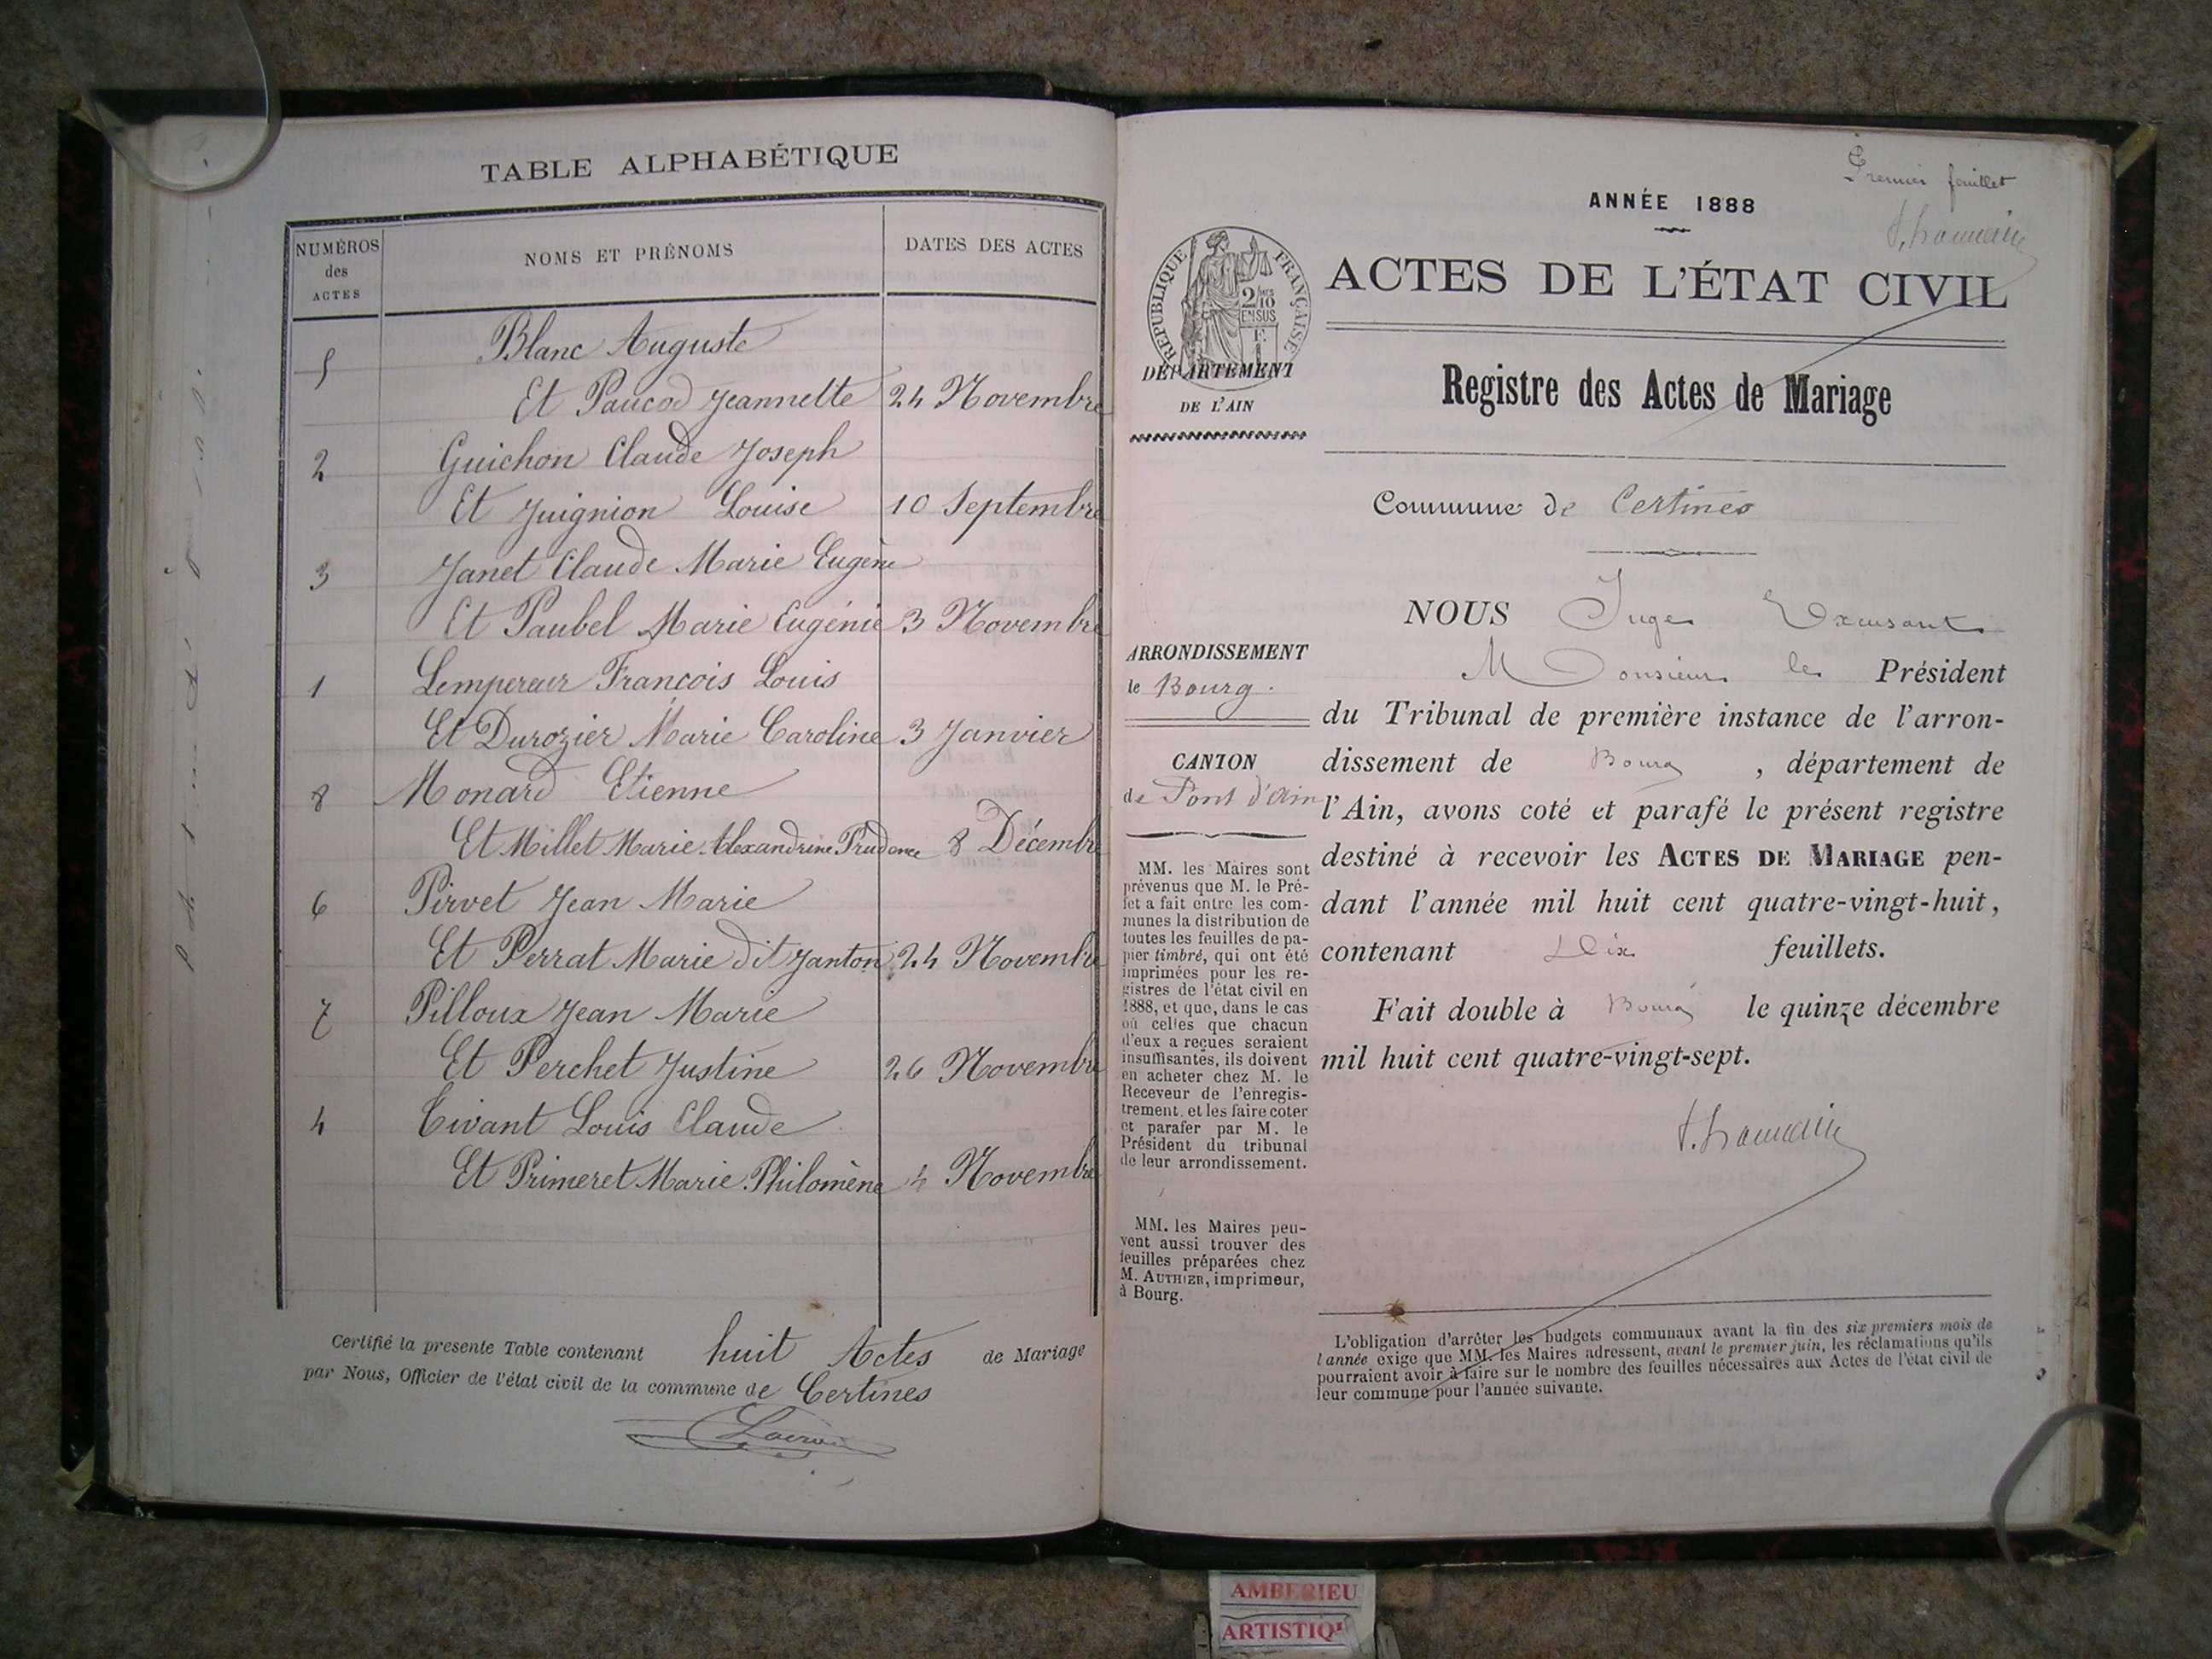 TABLE ALPHABÉTIQUE
NUMÉROS des ACTES
NOMS ET PRÉNOMS
DATES DES ACTES
5 Blanc Auguste
Et Paucod Jeannette 24 Novembre
2 Guichon Claude Joseph
Et Juignion Louise 10 Septembre
3 Janet Claude Marie Eugène
Et Paubel Marie Eugénie 3 Novembre
1 Lempereur François Louis
Et Durozier Marie Caroline 3 Janvier
8 Monard Etienne
Et Millet Marie Alexandrine Prudence 8 Décembre
6 Pirvet Jean Marie
Et Perrat Marie dit Janton 24 Novembre
7 Pilloux Jean Marie
Et Perchet Justine 26 Novembre
4 Tivant Louis Claude
Et Primeret Marie Philomène 4 Novembre
Certifié la presente Table contenant huit Actes de Mariage
par Nous, Officier de l'état civil de la commune de Certines
Premier feuillet
ANNÉE 1888
RÉPUBLIQUE FRANÇAISE
2/10
EN SUS
DÉPARTEMENT
DE L'AIN
ACTES DE L'ÉTAT CIVIL
Registre des Actes de Mariage
Commune de Certines
ARRONDISSEMENT
de Bourg.
CANTON
de Pont d'Ain
MM. les Maires sont
prévenus que M. le Pré-
fet a fait entre les com-
munes la distribution de
toutes les feuilles de pa-
pier timbré, qui ont été
imprimées pour les re-
gistres de l'état civil en
1888, et que, dans le cas
où celles que chacun
d'eux a reçues seraient
insuffisantes, ils doivent
en acheter chez M. le
Receveur de l'enregis-
trement, et les faire coter
et parafer par M. le
Président du tribunal
de leur arrondissement.
MM. les Maires peu-
vent aussi trouver des
feuilles préparées chez
M. AUTHIER, imprimeur,
à Bourg.
NOUS Juge Excusant
Monsieur le Président
du Tribunal de première instance de l'arron-
dissement de Bourg, département de
l'Ain, avons coté et parafé le présent registre
destiné à recevoir les ACTES DE MARIAGE pen-
dant l'année mil huit cent quatre-vingt-huit,
contenant Dix feuillets.
Fait double à Bourg le quinze décembre
mil huit cent quatre-vingt-sept.
L'obligation d'arrêter les budgets communaux avant la fin des six premiers mois de
l'année exige que MM. les Maires adressent, avant le premier juin, les réclamations qu'ils
pourraient avoir à faire sur le nombre des feuilles nécessaires aux Actes de l'état civil de
leur commune pour l'année suivante.
AMBERIEU
ARTISTIQ